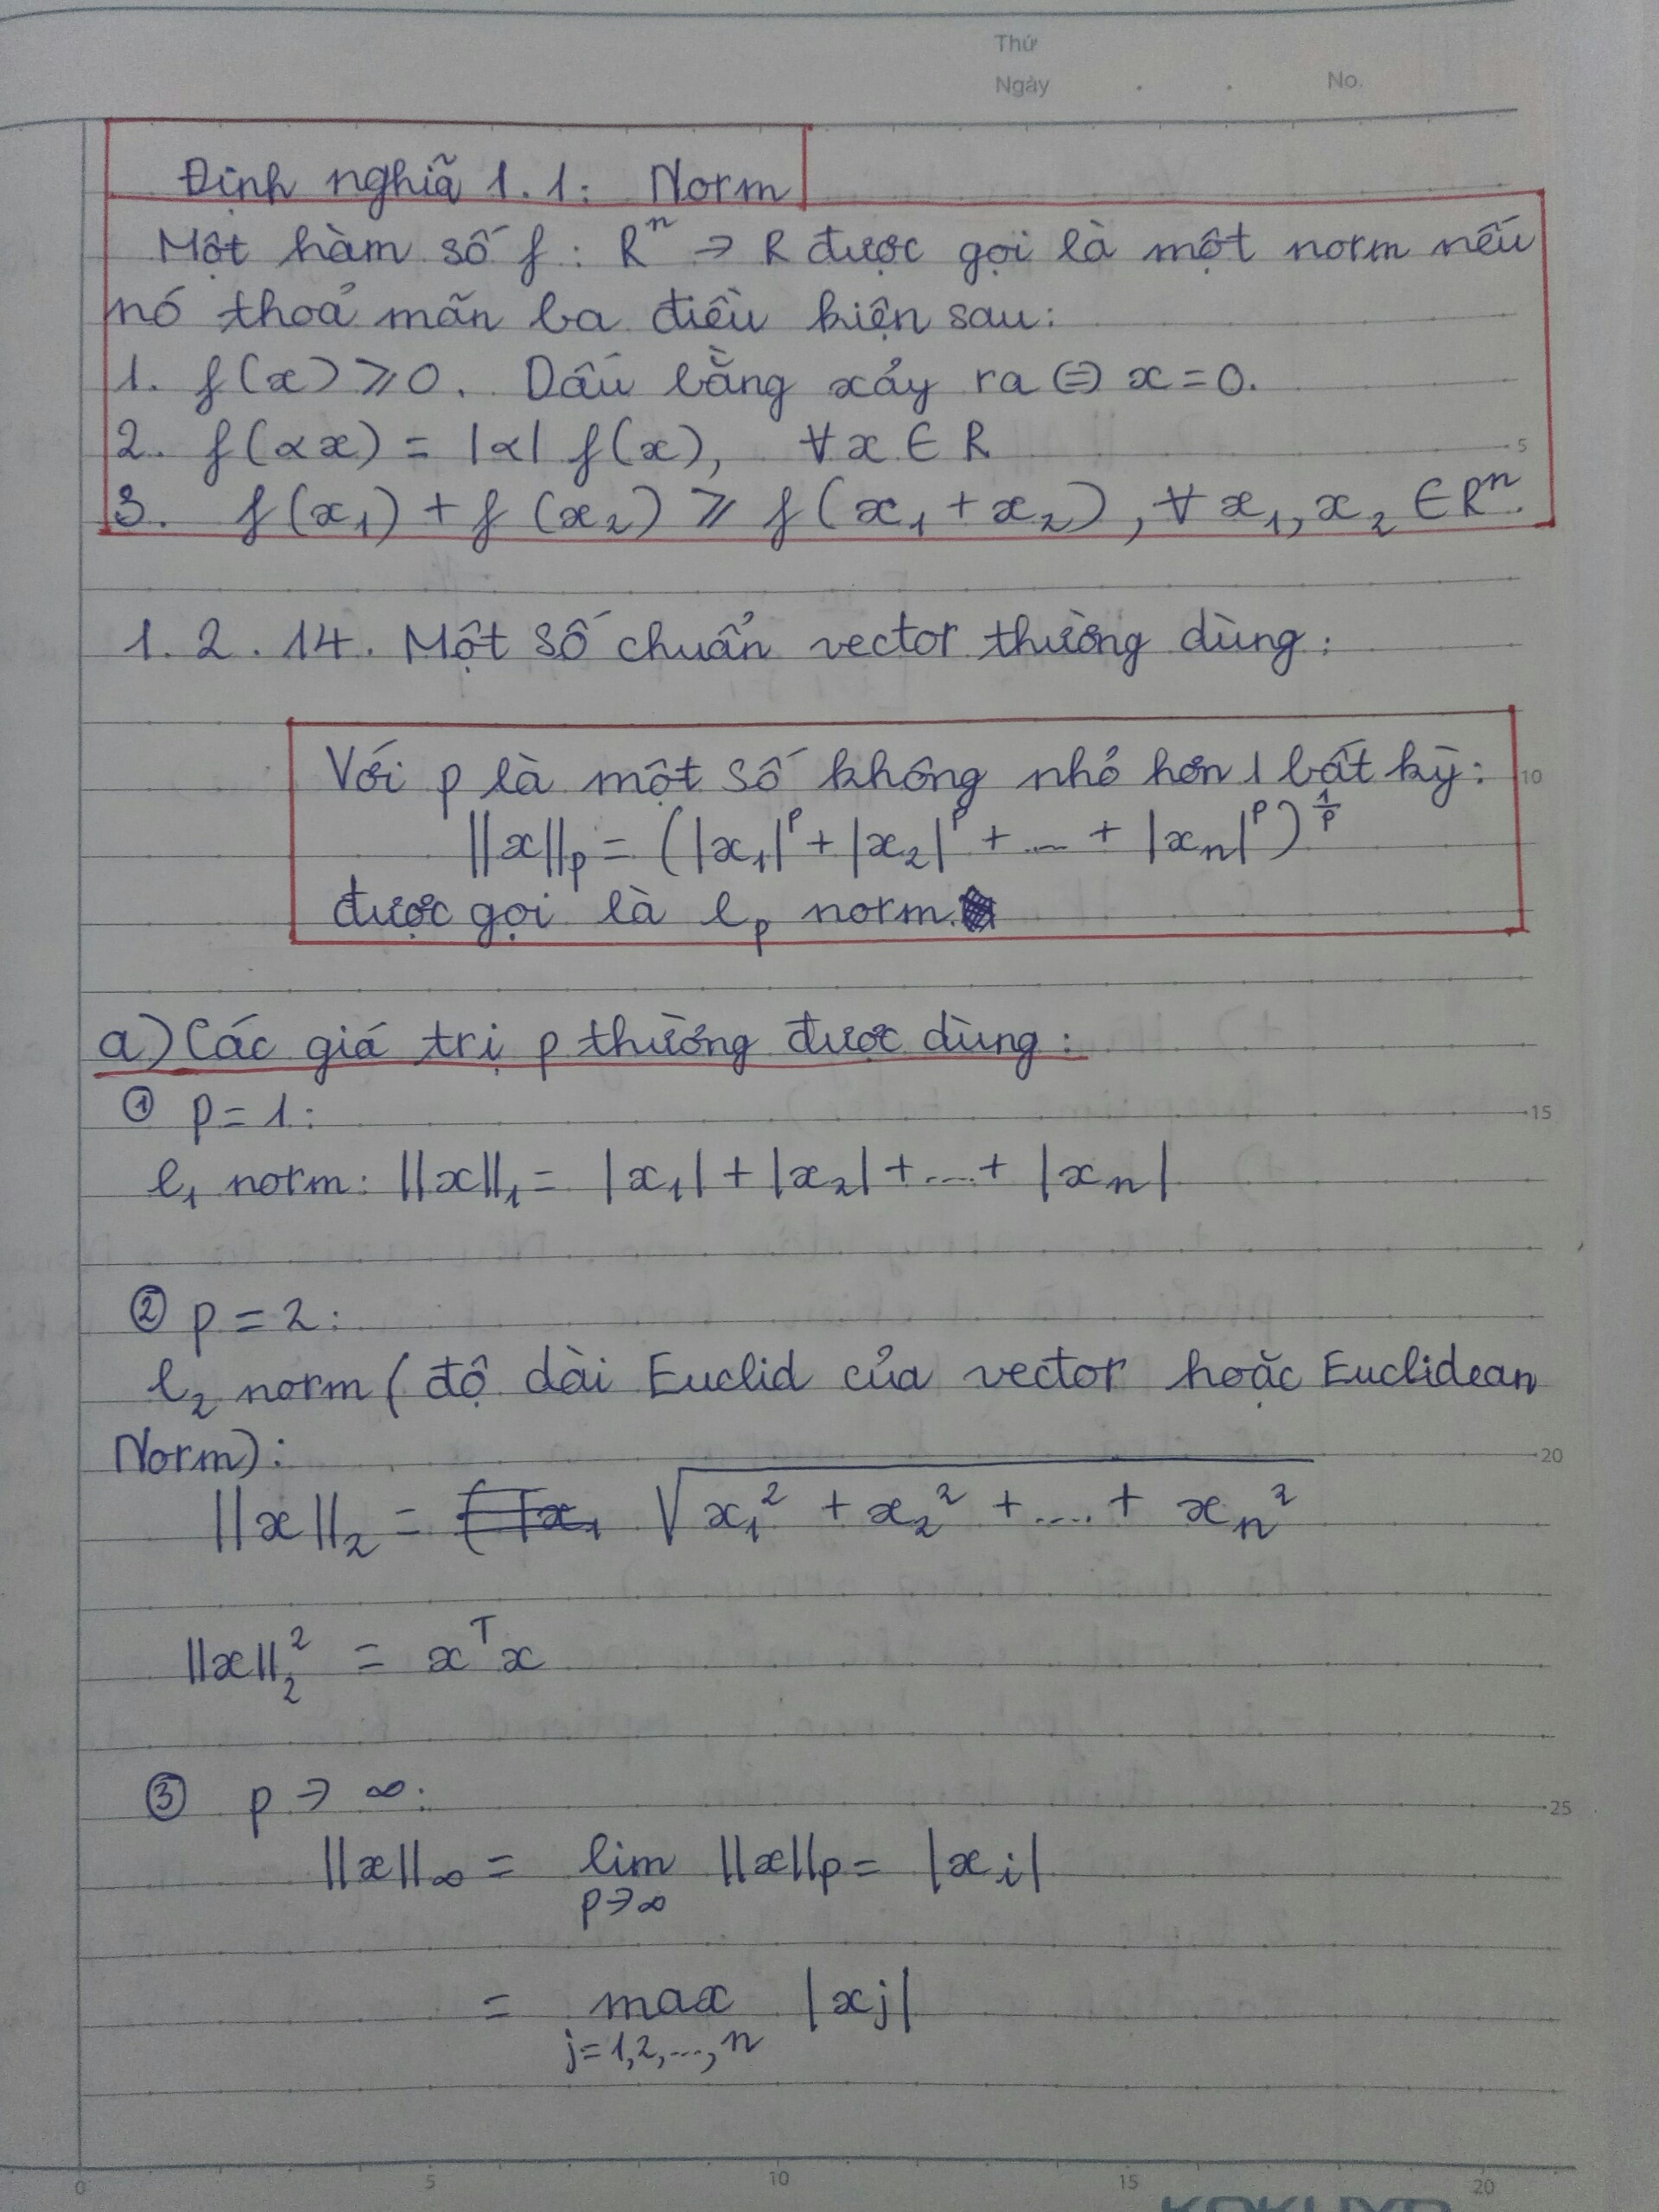 Thứ
Ngày . . No.
Định nghĩã 1.1: Norm
Một hàm số f : Rⁿ → R được gọi là một norm nếu
nó thoả mãn ba điều kiện sau:
1. f(x) ⩾ 0. Dấu bằng xảy ra ⇔ x = 0.
2. f(αx) = |α| f(x), ∀x ∈ R
5
3. f(x₁) + f(x₂) ⩾ f(x₁ + x₂), ∀x₁, x₂ ∈ Rⁿ.
1.2.14. Một số chuẩn vector thường dùng:
Với p là một số không nhỏ hơn 1 bất kỳ:
10
||x||ₚ = (|x₁|ᵖ + |x₂|ᵖ + ... + |xₙ|ᵖ)^(1/p)
được gọi là ℓₚ norm.
a) Các giá trị p thường được dùng:
① p = 1:
15
ℓ₁ norm: ||x||₁ = |x₁| + |x₂| + ... + |xₙ|
② p = 2:
ℓ₂ norm (độ dài Euclid của vector hoặc Euclidean
Norm):
20
||x||₂ = √(x₁² + x₂² + .... + xₙ²)
||x||₂² = xᵀx
③ p → ∞:
25
||x||∞ = lim ||x||ₚ = |xᵢ|
p→∞
= max |xj|
j=1,2,...,n
0 5 10 15 20
KOKUYO